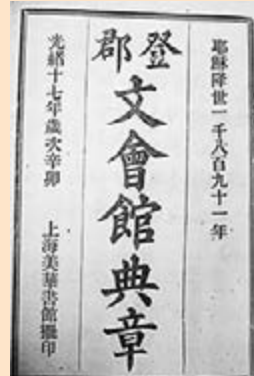 耶穌降世一千八百九十一年
登郡
文會館典章
光緒十七年歲次辛卯
上海美華書館擺印